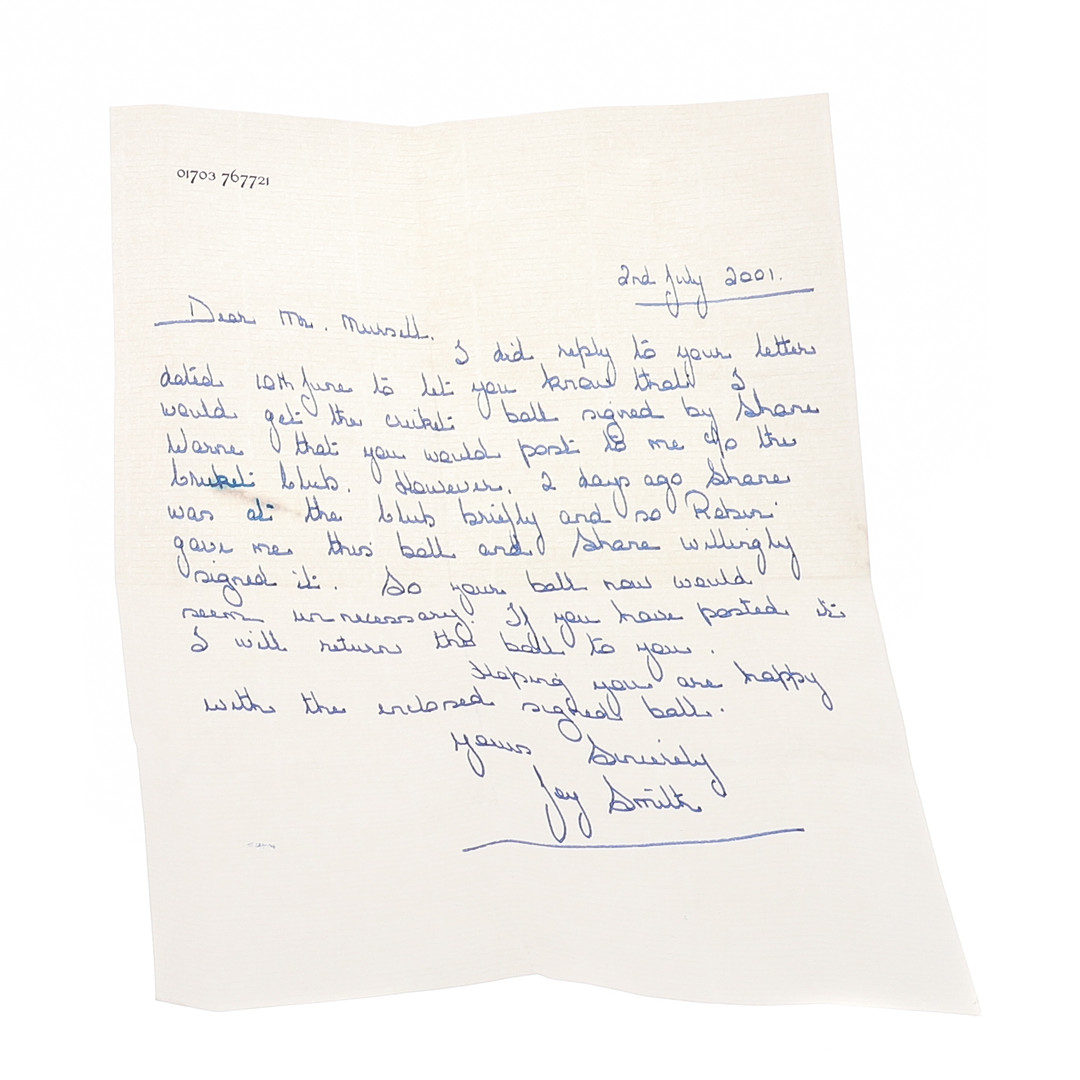 01703 767721
2nd July 2001.
Dear Mr. Mursell.
I did reply to your letter
dated 10th June to let you know that I
would get the cricket ball signed by Shane
Warne that you would post to me c/o the
Cricket Club. However, 2 days ago Shane
was at the Club briefly and so Robin
gave me this ball and Shane willingly
signed it. So your ball now would
seem unnecessary. If you have posted it
I will return the ball to you.
Hoping you are happy
with the enclosed signed ball.
Yours Sincerely
Joy Smith